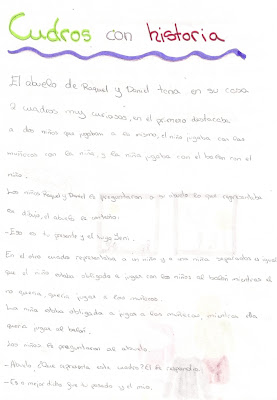 Cudros con historia
El abuelo de Raquel y David tenia en su casa
2 cuadros muy curiosos, en el primero destacaba
a dos niños que jugaban a lo mismo, el niño jugaba con las
muñecas con la niña y la niña jugaba con el balón con el
niño.
Los niños Raquel y David le preguntaron a su abuelo lo que representaba
el dibujo, el abuelo les contestó:
-Ese es tu presente y el tuyo Jeni.
En el otro cuadro representaba a un niño y a una niña separados e igual
que el niño estaba obligado a jugar con los niños al balón mientras el
no quería, quería jugar a las muñecas.
La niña estaba obligada a jugar a las muñecas, mientras ella
quería jugar al balón.
Los niños le preguntaron al abuelo
-Abuelo, ¿Que representa este cuadro? El les respondio.
-Es o mejor dicho que tu pasado y el mio.